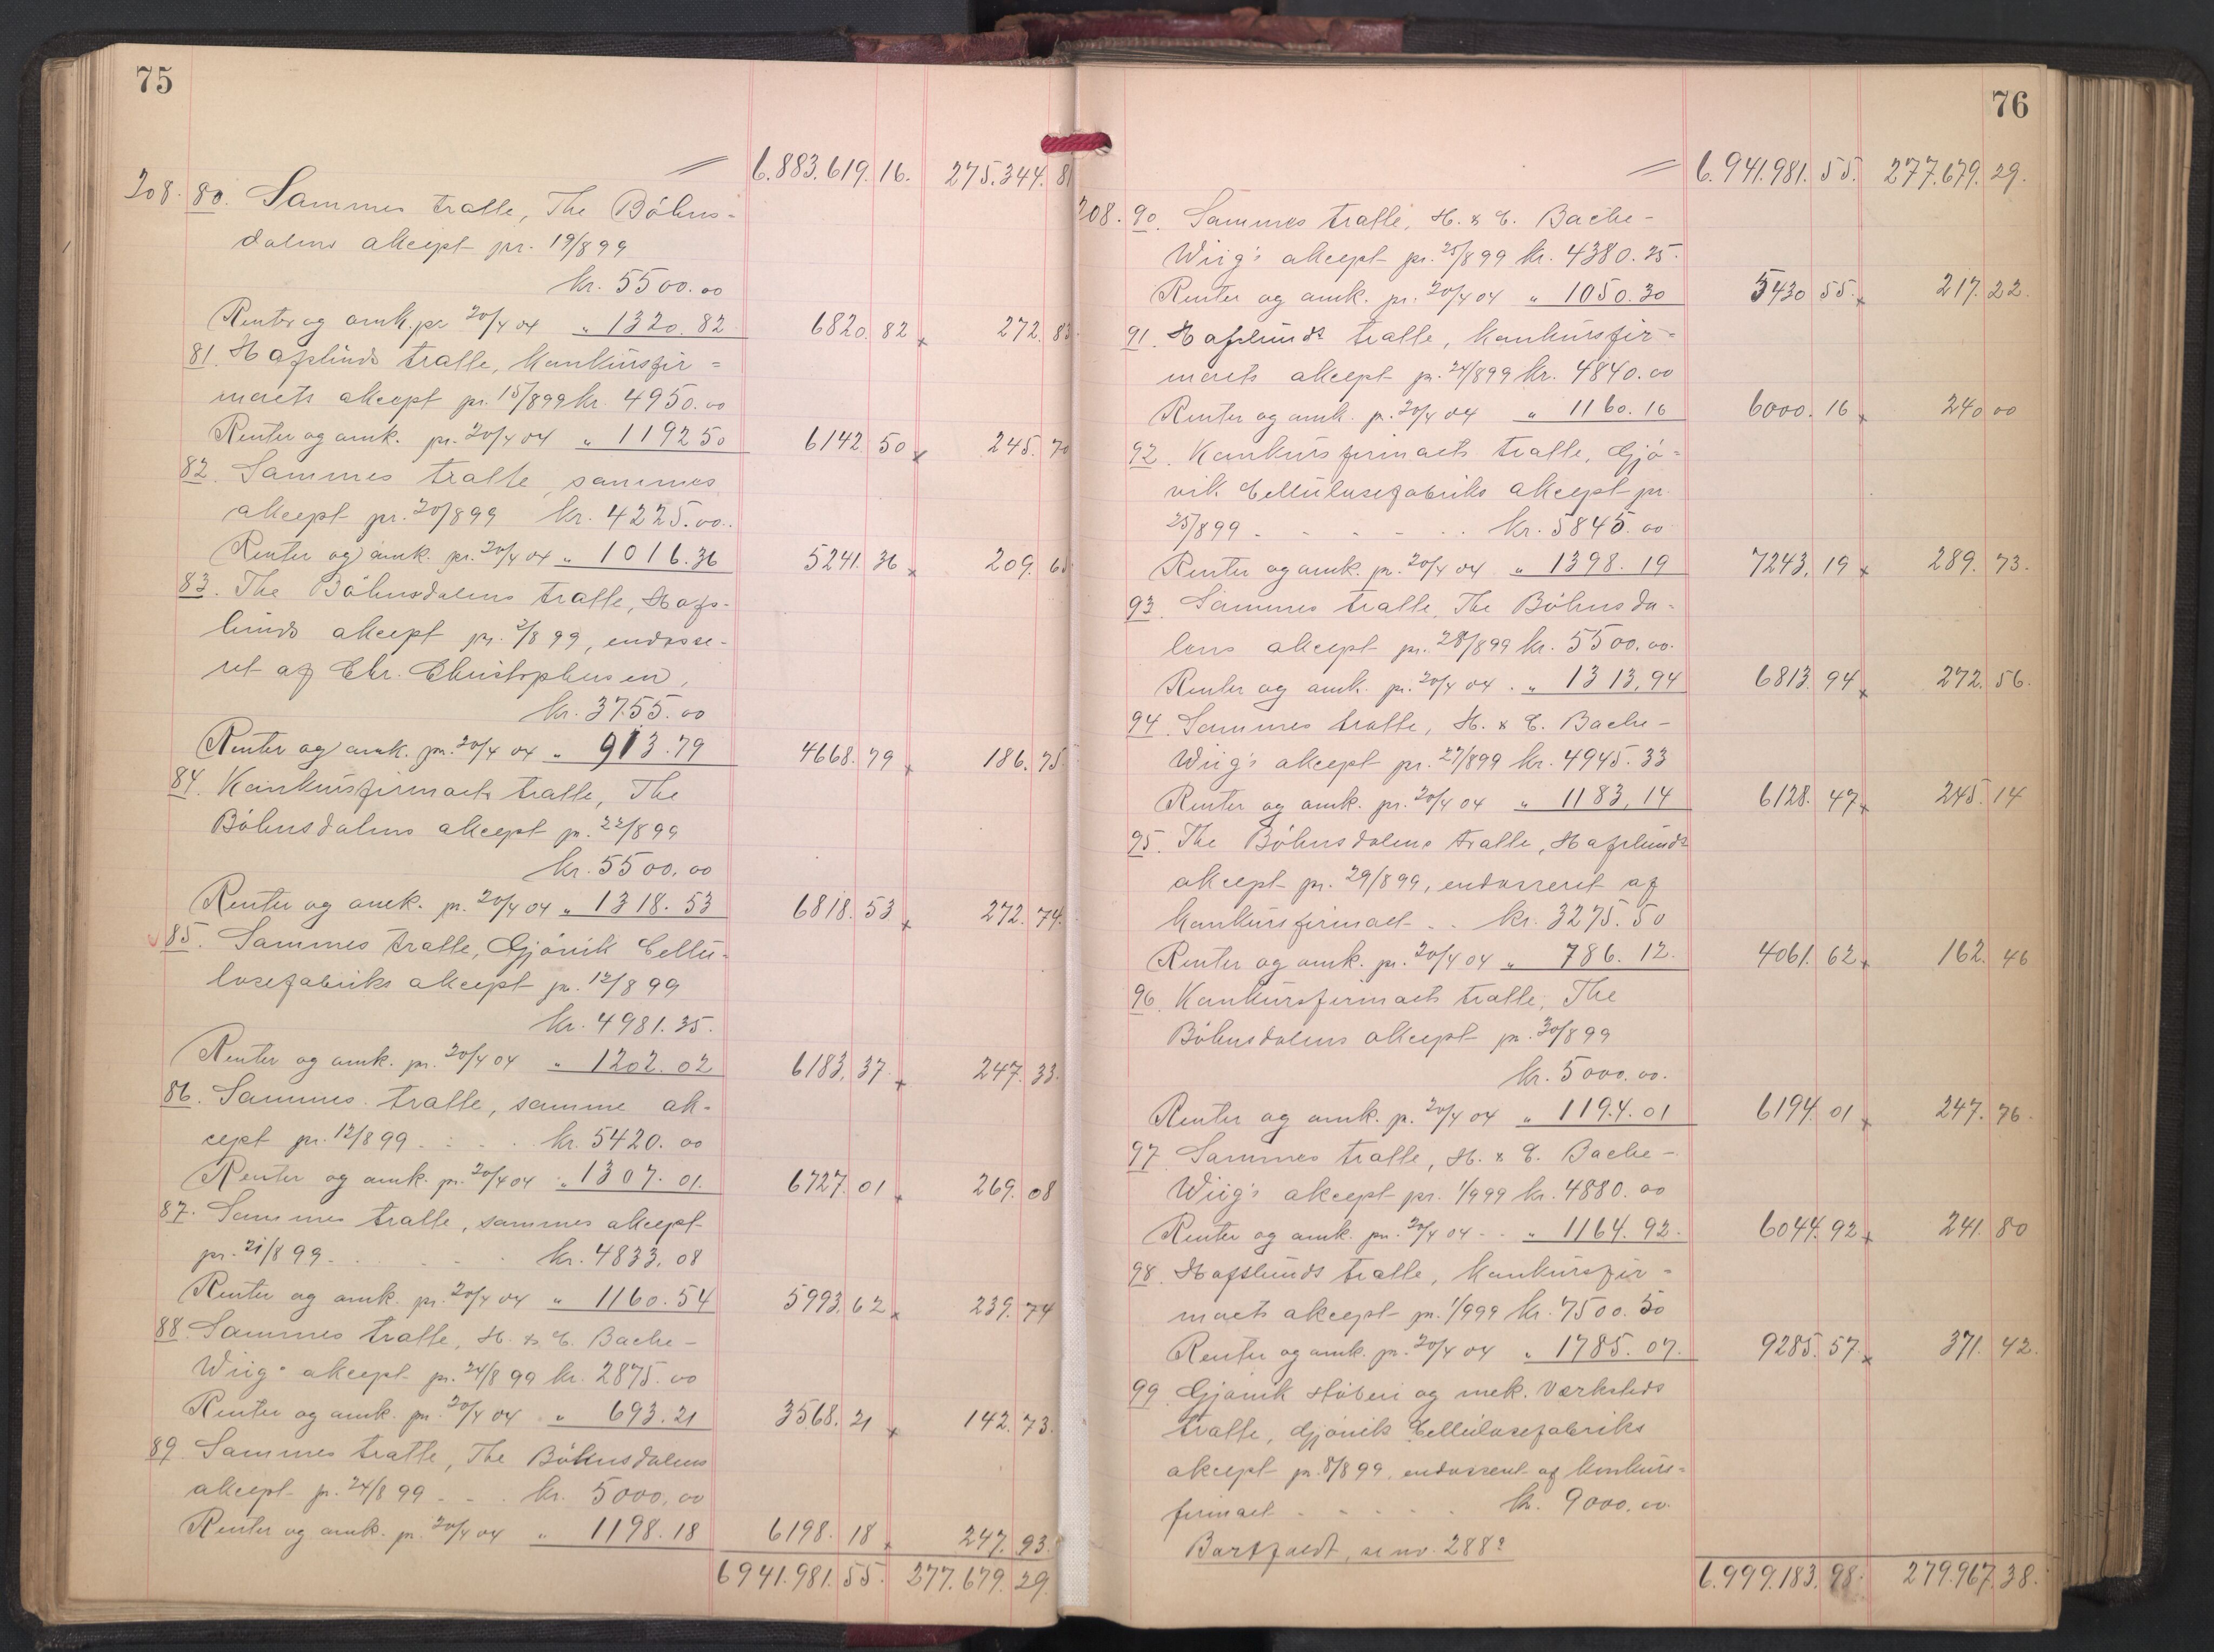 75
6.883.619.16. 275.344.81
208. 80. Sammes tratte, The Böhns-
dalens akcept pr. 19/8 99
kr. 5500.00
Renter og omk. pr. 20/4 04 " 1320.82 6820.82 272.83
81. Hafslunds tratte, konkursfir=
maets akcept pr. 15/8 99 kr. 4950.00
Renter og omk. pr. 20/4 04 " 1192 50 6142.50 245.70
82. Sammes tratte, sammes
akcept pr. 20/8 99 kr. 4225.00.
Renter og omk. pr. 20/4 04 " 1016.36 5241.36 209.65
83. The Böhnsdalens tratte, Hafs-
lunds akcept pr. 2/8 99, endosse-
ret af Chr. Christophersen,
kr. 3755.00
Renter og omk. pr. 20/4 04 " 913.79 4668.79 186.75
84. Konkursfirmaets tratte, The
Böhnsdalens akcept pr. 22/8 99
kr. 5500.00
Renter og omk. pr. 20/4 04 " 1318.53 6818.53 272.74.
85. Sammes tratte, Gjövik Cellu-
losefabriks akcept pr. 12/8 99
kr. 4981.35.
Renter og omk. pr. 20/4 04 " 1202.02 6183.37 247.33.
86. Sammes tratte, samme ak-
cept pr. 12/8 99 . . . kr. 5420.00
Renter og omk. pr. 20/4 04 " 1307.01. 6727.01 269.08
87. Sammes tratte, sammes akcept
pr. 21/8 99 . . . . . kr. 4833.08
Renter og omk. pr. 20/4 04 " 1160.54 5993.62 239.74
88. Sammes tratte, H. & C. Bache-
Wiig's akcept pr. 24/8 99 kr. 2875.00
Renter og omk. pr. 20/4 04 . " 693.21 3568.21 142.73.
89. Sammes tratte, The Böhnsdalens
akcept pr. 24/8 99 . . . kr. 5000.00
Renter og omk. pr. 20/4 04 " 1198.18 6198.18 247.93.
6941.981.55. 277.679.29.
76
6.941.981.55. 277.679.29.
208. 90. Sammes tratte, H. & C. Bache-
Wiig's akcept pr. 25/8 99 kr. 4380.25.
Renter og omk. pr. 20/4 04 " 1050.30 5430.55 217.22.
91. Hafslunds tratte, konkursfir=
maets akcept pr. 24/8 99 kr. 4840.00
Renter og omk. pr. 20/4 04 " 1160.16 6000.16 240.00
92. Konkursfirmaets tratte, Gjö=
vik Cellulosefabriks akcept pr.
25/8 99 . . . . . . kr. 5845.00
Renter og omk. pr. 20/4 04 " 1398.19 7243.19 289.73.
93. Sammes tratte, The Böhnsda-
lens akcept pr. 28/8 99 kr. 5500.00.
Renter og omk. pr. 20/4 04 . " 1313.94 6813.94 272.56.
94. Sammes tratte, H. & C. Bache-
Wiig's akcept pr. 27/8 99 kr. 4945.33
Renter og omk. pr. 20/4 04 " 1183.14 6128.47 245.14
95. The Böhnsdalens tratte, Hafslunds
akcept pr. 29/8 99, endosseret af
konkursfirmaet . . kr. 3275.50
Renter og omk. pr. 20/4 04 " 786.12. 4061.62 162.46
96. Konkursfirmaets tratte, The
Böhnsdalens akcept pr. 30/8 99
kr. 5000.00.
Renter og omk. pr. 20/4 04 " 1194.01 6194.01 247.76.
97. Sammes tratte, H. & C. Bache-
Wiig's akcept pr. 1/9 99 kr. 4880.00
Renter og omk. pr. 20/4 04 . . " 1164.92. 6044.92 241.80
98. Hafslunds tratte, konkursfir=
maets akcept pr. 1/9 99 kr. 7500.50
Renter og omk. pr. 20/4 04 " 1785.07. 9285.57. 371.42.
99. Gjövik Støberi og mek. Værksteds
tratte, Gjöviks Cellulosefabriks
akcept pr. 8/8 99, endosseret af konkurs=
firmaet . . . . . kr. 9000.00.
Bortfaldt, se no. 288?
6.999.183.98. 279.967.38.